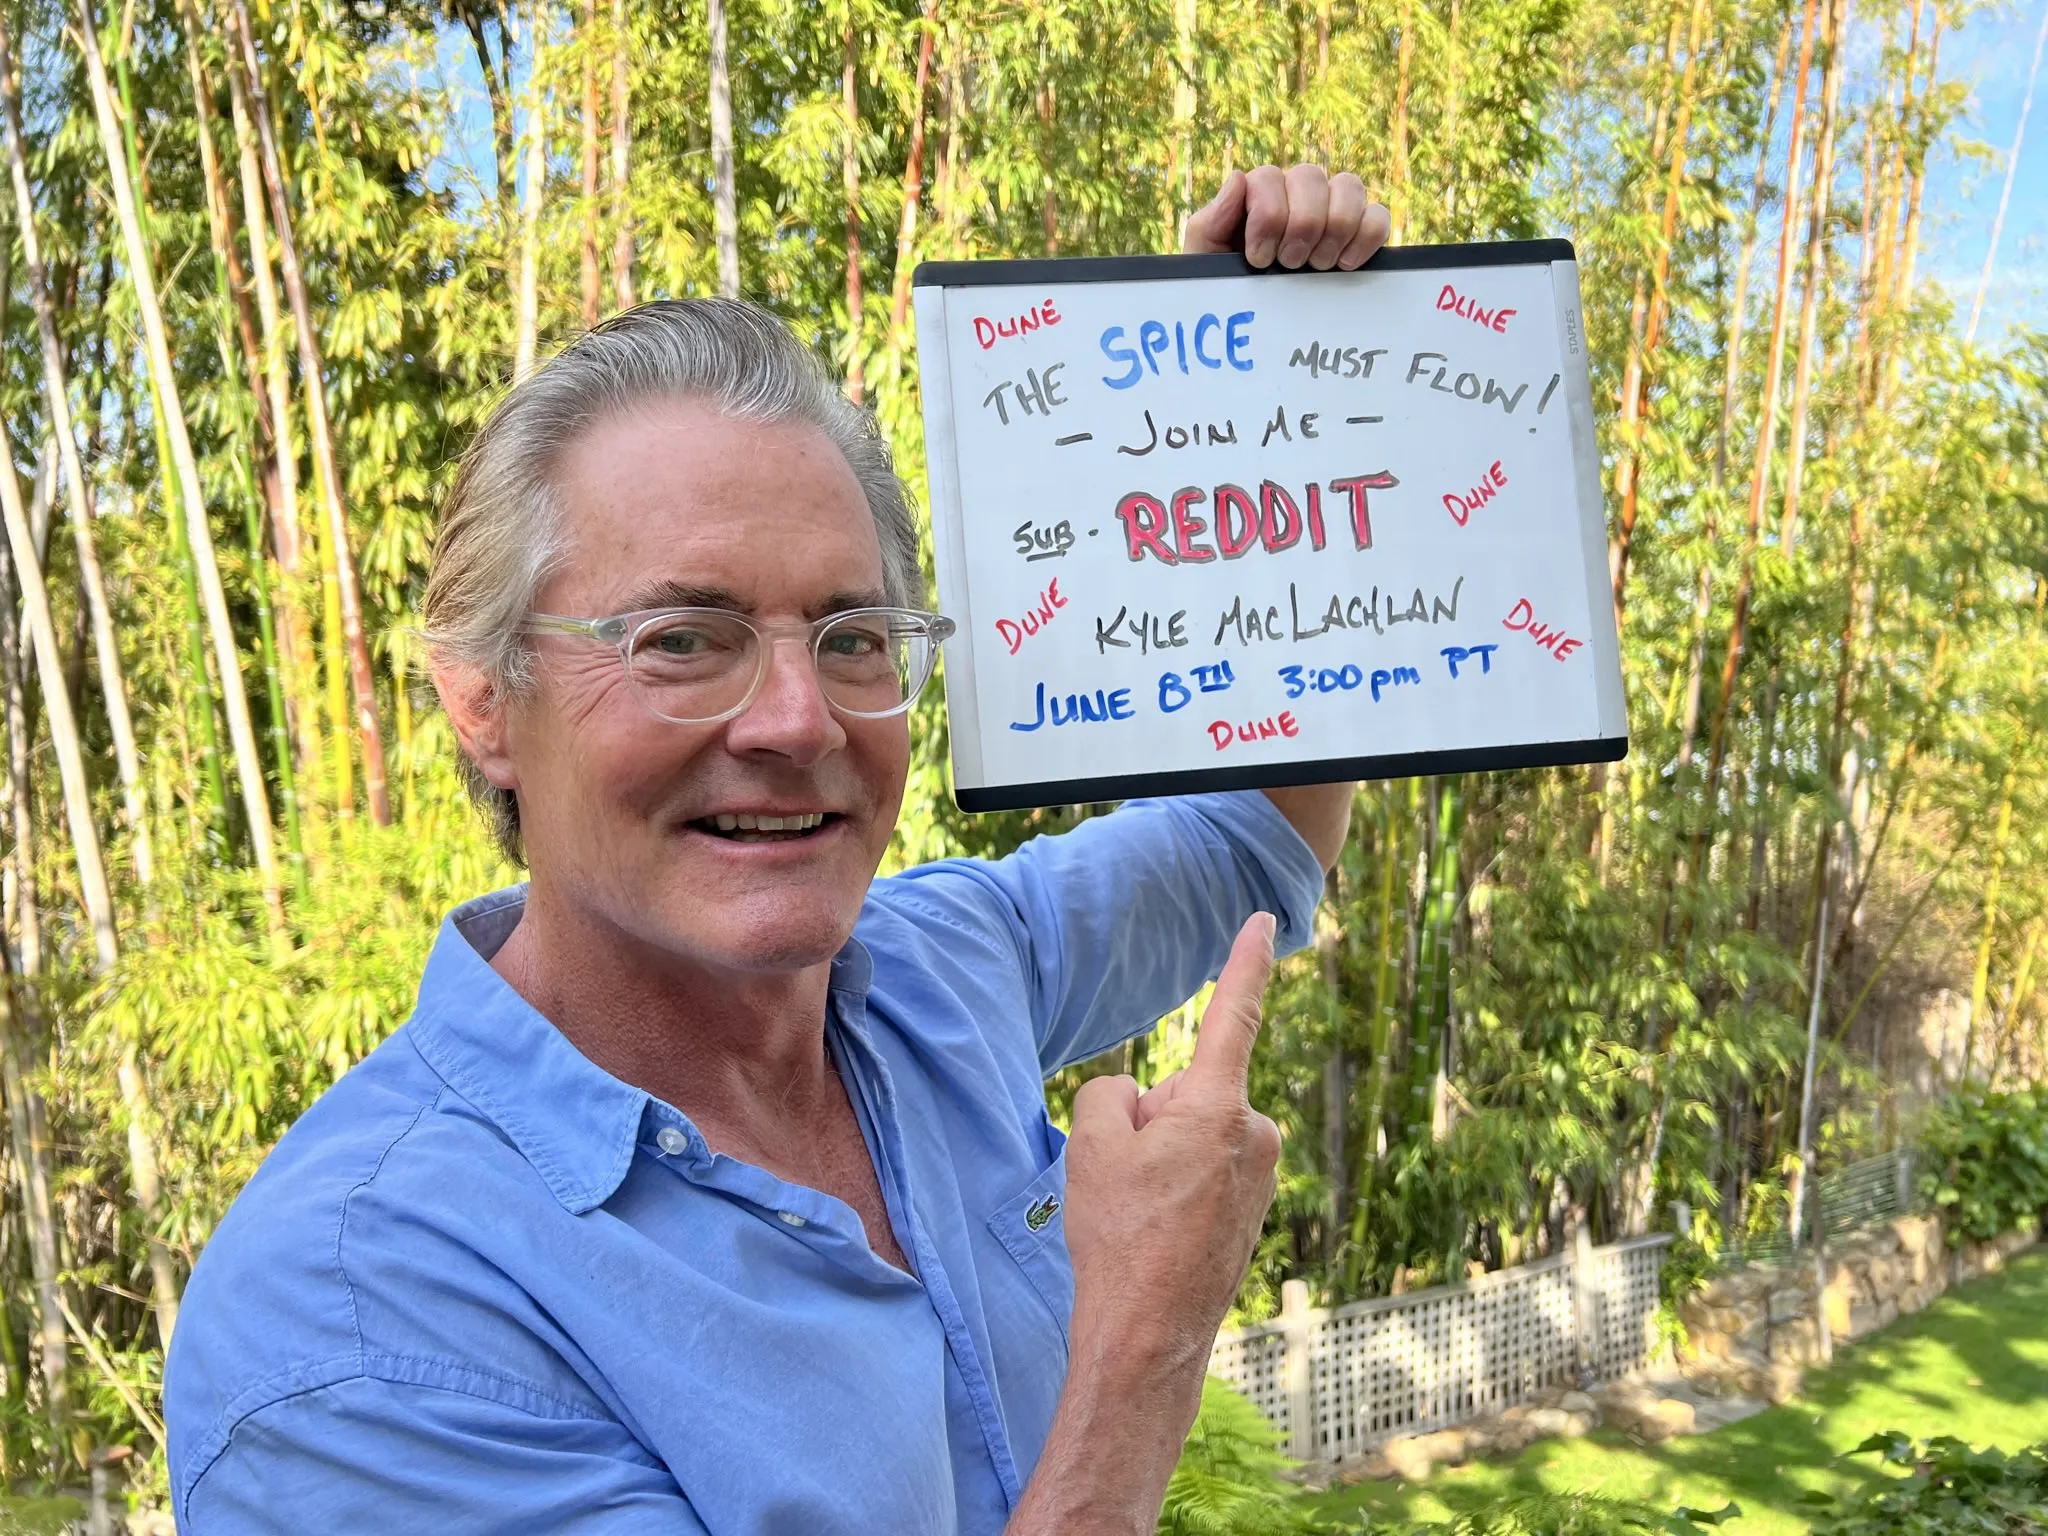 DUNE DUNE
THE SPICE MUST FLOW!
- JOIN ME -
SUB - REDDIT DUNE
DUNE KYLE MACLACHLAN DUNE
JUNE 8TH 3:00pm PT
DUNE
STAPLES